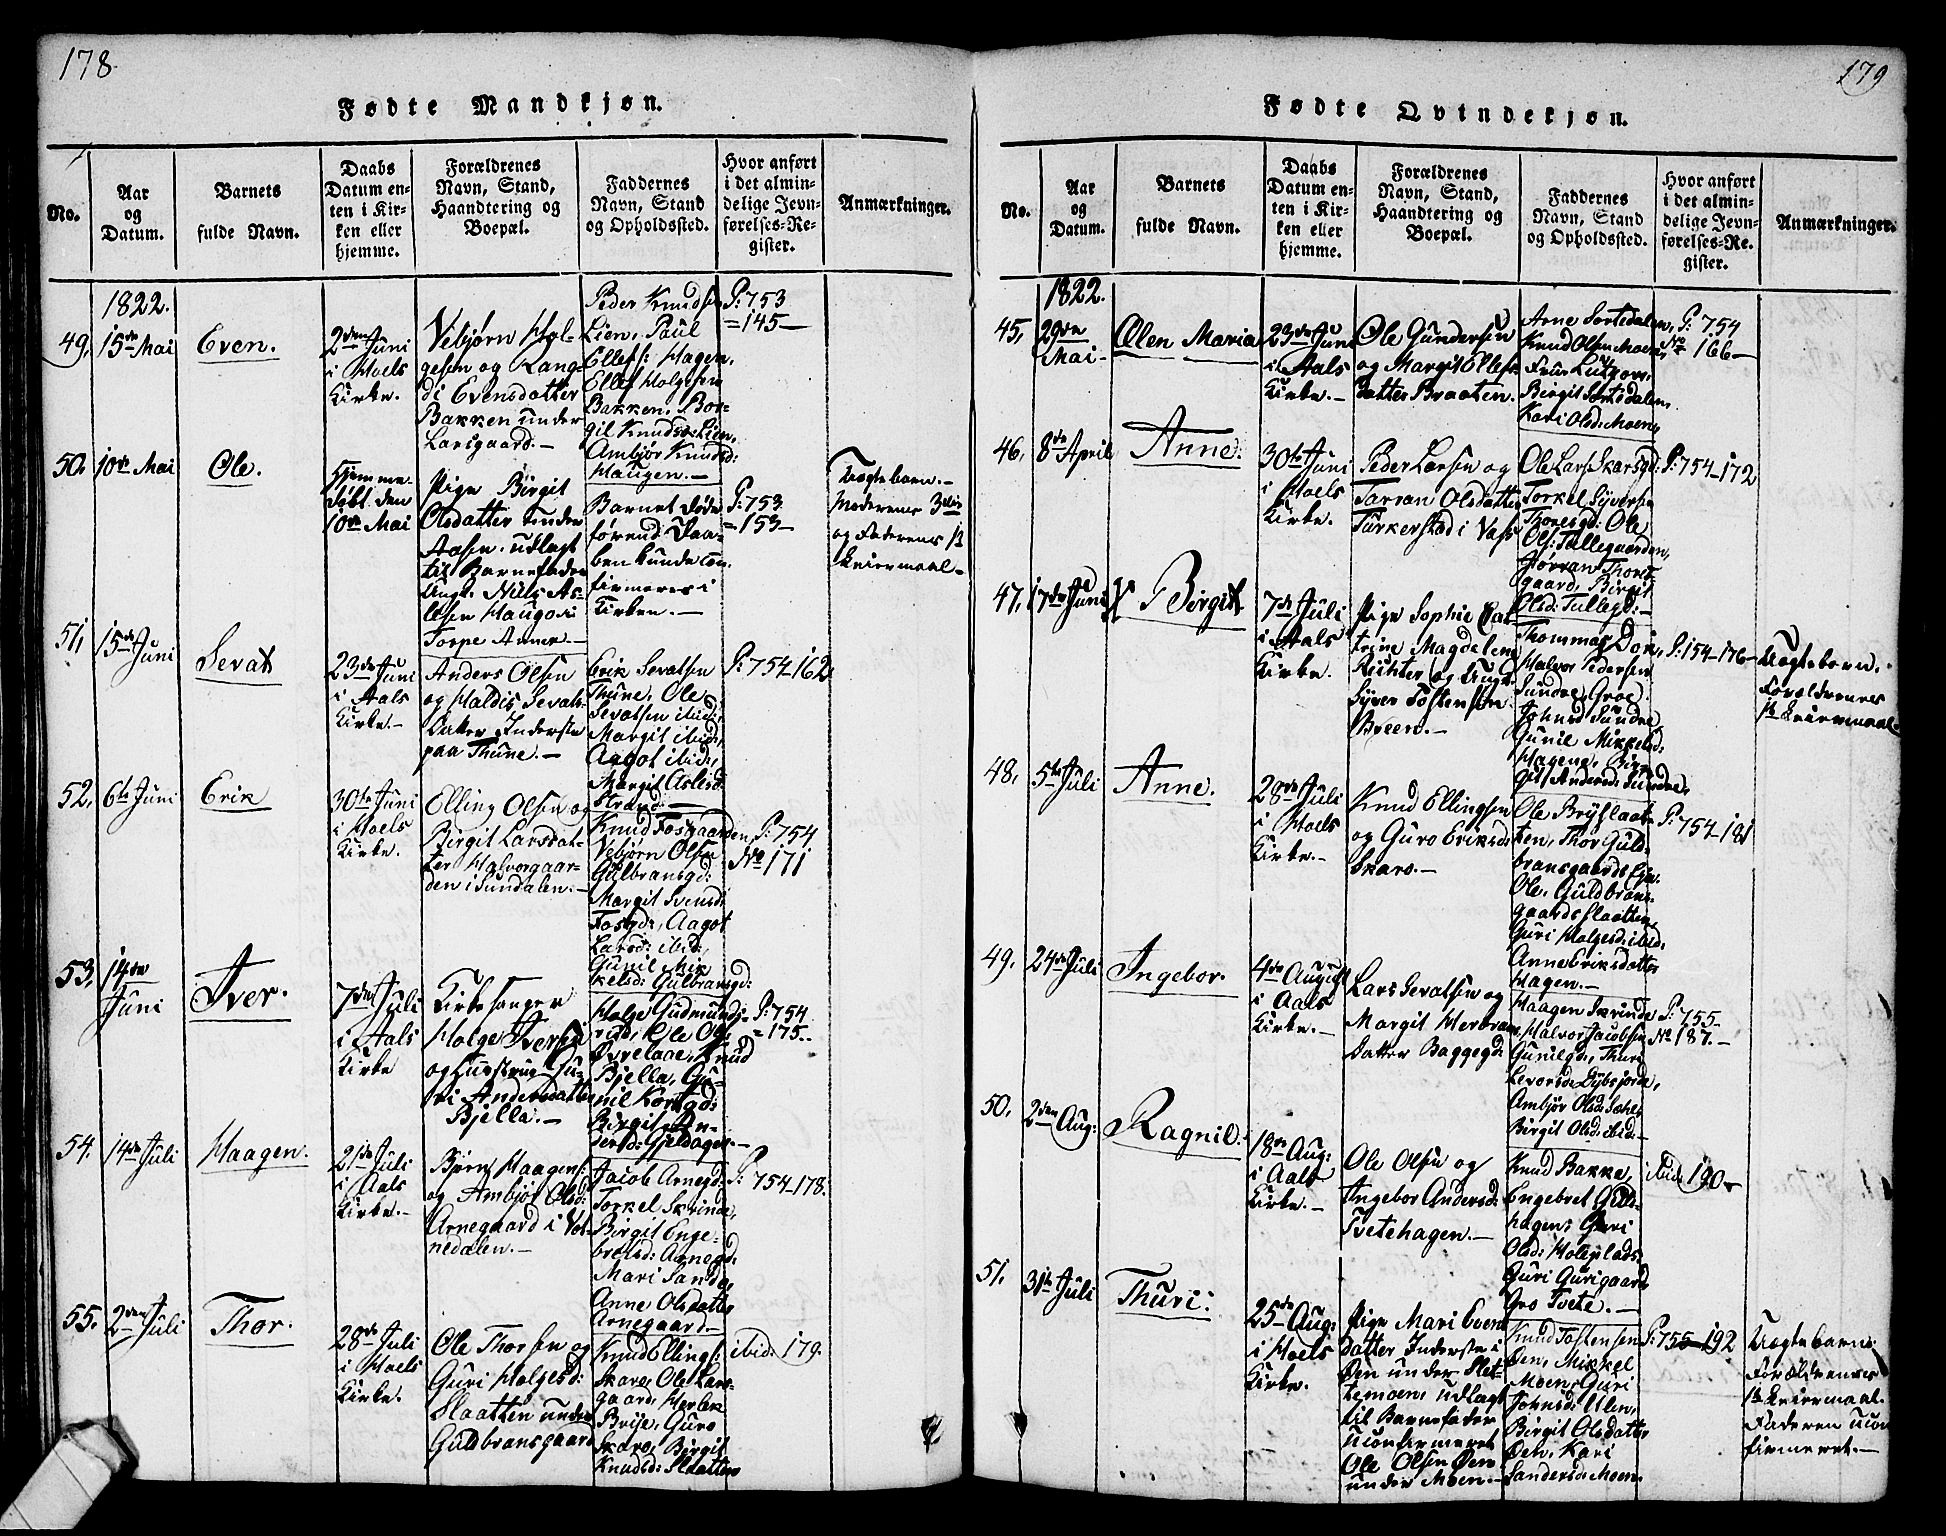 178.
Fødte Mandkjøn.
No.
Aar
og
Datum.
Barnets
fulde Navn.
Daabs
Datum en-
ten i Kir-
ken eller
hjemme.
Forældrenes
Navn, Stand,
Haandtering og
Boepæl.
Faddernes
Navn, Stand
og Opholdssted.
Hvor anført
i det almin-
delige Jevn-
førelses-Re-
gister.
Anmærkninger.
1822.
49.
15de Mai
Even.
2den Juni
i Hoels
Kirke.
Vebjørn Hol-
gesen og Rang-
di Evensdatter
Bakken under
Larsgaard.—
Peder Knudsen
Lien, Paul
Ellefs: Hagen,
Ellef Holgesen
Bakken, Bor-
gil Knudsd: Lien,
Ambjør Knudsd:
Haugen.—
P: 753
=145—
50.
10de Mai
Ole.
Hjemme-
døbt den
10de Mai
Pige Birgit
Olsdatter under
Aasen, udlagt
til Barnefader
Ungk. Niels As-
lesen Haugo i
Torpe Annex.—
Barnet døde
førend Daa-
ben kunde con-
firmeres i
Kirken.—
P: 753
=153—
Uægte barn.—
Moderens 3die
og Faderens 1ste
Leiermaal.—
51,
15de Juni
Sevat
23de Juni
i Aals
Kirke.—
Anders Olsen
og Haldis Sevats-
datter Inderste
paa Thune.—
Erik Sevatsen
Thune, Ole
Sevatsen ibid,
Margit ibid,
Aagot ibid,
Margit Aslesd:
Strand.—
P: 754-162.
52,
6te Juni
Erik
30te Juni
i Hoels
Kirke.
Elling Olsen og
Birgit Larsdat-
ter Halvorgaar-
den i Sundalen.—
Knud Fosgaarden,
Vebjørn Olsen
Gulbransgd:
Margit Svensd:
Fosgd:, Aagot
Larsd: ibid,
Gunil Mik
kelsd: Gulbransgd:
P: 754
No 171
53,
14de
Juni
Iver.
7de Juli
i Aals
Kirke
Kirkesanger
Holge Iversen
og Hustrue Gu-
ri Andersdatter
Bjella.—
Holge Gudmunds-
rud, Ole Ols:
Øvrelaae, Knud
Bjella, Gu-
nil Korsgd:
Birgit An-
dersd: Gjeldagen.—
P: 754
=175..
54.
14de Juli
Haagen.
21de Juli
i Aals
Kirke.—
Bjørn Haagens:
og Ambjør Olsd:
Arnegaard i Vot-
nedalen.—
Jacob Arnegd:
Torkel Skrinde,
Birgit Enge-
bretsd: Arnegd.
Mari Sando,
Anne Olsdatter
Arnegaard.—
P: 754-178.
55.
2den Juli
Thor.
28de Juli
i Hoels
Kirke.
Ole Thorsen og
Guri Holgesd:
Slaatten under
Guldbransgaard
Knud Ellings:
Skaro, Ole Lars-
gaard, Herlek
Brøje, Guro
Skaro, Birgit
Knudsd: Slaatten
ibid. 179.
179
Fødte Qvindekjøn.
No.
Aar
og
Datum.
Barnets
fulde Navn.
Daabs
Datum en-
ten i Kir-
ken eller
hjemme.
Forældrenes
Navn, Stand,
Haandtering og
Boepæl.
Faddernes
Navn, Stand
og Opholdssted.
Hvor anført
i det almin-
delige Jevn-
førelses-Re-
gister.
Anmærkninger.
1822.
45,
29de
Mai.
Olen Maria
23de Juni
i Aals
Kirke.—
Ole Gundersen
og Margit Ellefs-
datter Braaten.
Arne Sortedalen,
Knud Olsen Moen,
Frue Lützow,
Birgit Sortedalen,
Kari Olsd: Moen,
P: 754
No 166—
46,
8de April
Anne.
30te Juni
i Hoels
Kirke.
Peder Larsen og
Jørran Olsdatter
Turkerstad i Vats
Ole Lars: Skarsgd:
Torkel Syversen
Thoresgd: Ole
Ols: Tullegaarden,
Jørran Thores-
gaard, Birgit
Olsd: Tullegd:—
P: 754-172
47,
17de Juni
Birgit
7de Juli
i Aals
Kirke.
Pige Sophie Cat-
trine Magdelene
Richter og Ungk:
Syver Tostensen
Breen.—
Thommas Dok,
Halvor Pedersen
Sundre, Groe
Johnsd Sundre,
Gunil Mikkelsd:
Hagene, Bir-
git Andersd: Sundre.
P: 154-176—
Uægte barn.
Forældrenes
1ste Leiermaal
48,
5te Juli
Anne.
28de Juli
i Hoels
Kirke.—
Knud Ellingsen
og Guro Eriksd:
Skaro.—
Ole Brøjslaat-
ten, Thor Guld-
bransgaards Eje.
Ole Guldbrans-
gaardslaatten,
Guri Holgesd: ibid:
Anne Eriksdatter
Hagen.—
P: 754-181
49.
24de Juli
Ingebor.
4de August
i Aals
Kirke.—
Lars Sevatsen og
Margit Herbrans-
datter Baggegd:
Haagen Skrinde
Halvor Jacobsen
Gunilgd:, Thuri
Levorsd: Dybsjord,
Ambjør Olsd: Sahl,
Birgit Olsd: ibid—
P: 755-
No 187.—
50.
2den Aug:
Ragnil.
18de Aug:
i Aals
Kirke.—
Ole Olsen og
Ingebor Andersd:
Tvetehagen.—
Knud Bakke,
Engebret Guld-
hagen, Guri
Olsd: Holeplads,
Guri Gurigaard
Gro Tvete.—
ibid 190—
51.
31te Juli
Thuri.
25de Aug:
i Hoels
Kirke.
Pige Mari Evens
datter Inderste i
Øen under Slet-
temoen, udlagt
til Barnefader
uconfirmeret
Ole Olsen Øen
under Moen.—
Knud Tostensen
Øen, Mikkel
Moen, Guri
Johnsd: Ulen,
Birgit Olsdatter
Øen, Kari
Sandersd: Moen.
P: 755-192
Uægte barn.
Forældrenes
1ste Leiermaal.
Faderen ucon
firmeret.—